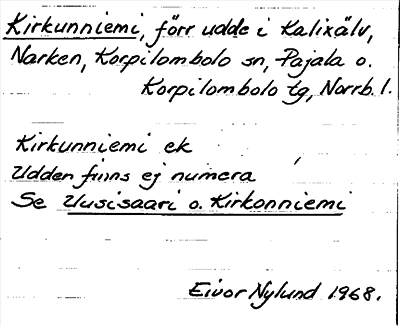 Kirkunniemi, förr udde i Kalixälv,
Narken, Korpilombolo sn, Pajala o.
Korpilombolo tg, Norrb. l.
Kirkunniemi ek
Udden finns ej numera
Se Uusisaari o. Kirkonniemi
Eivor Nylund 1968.